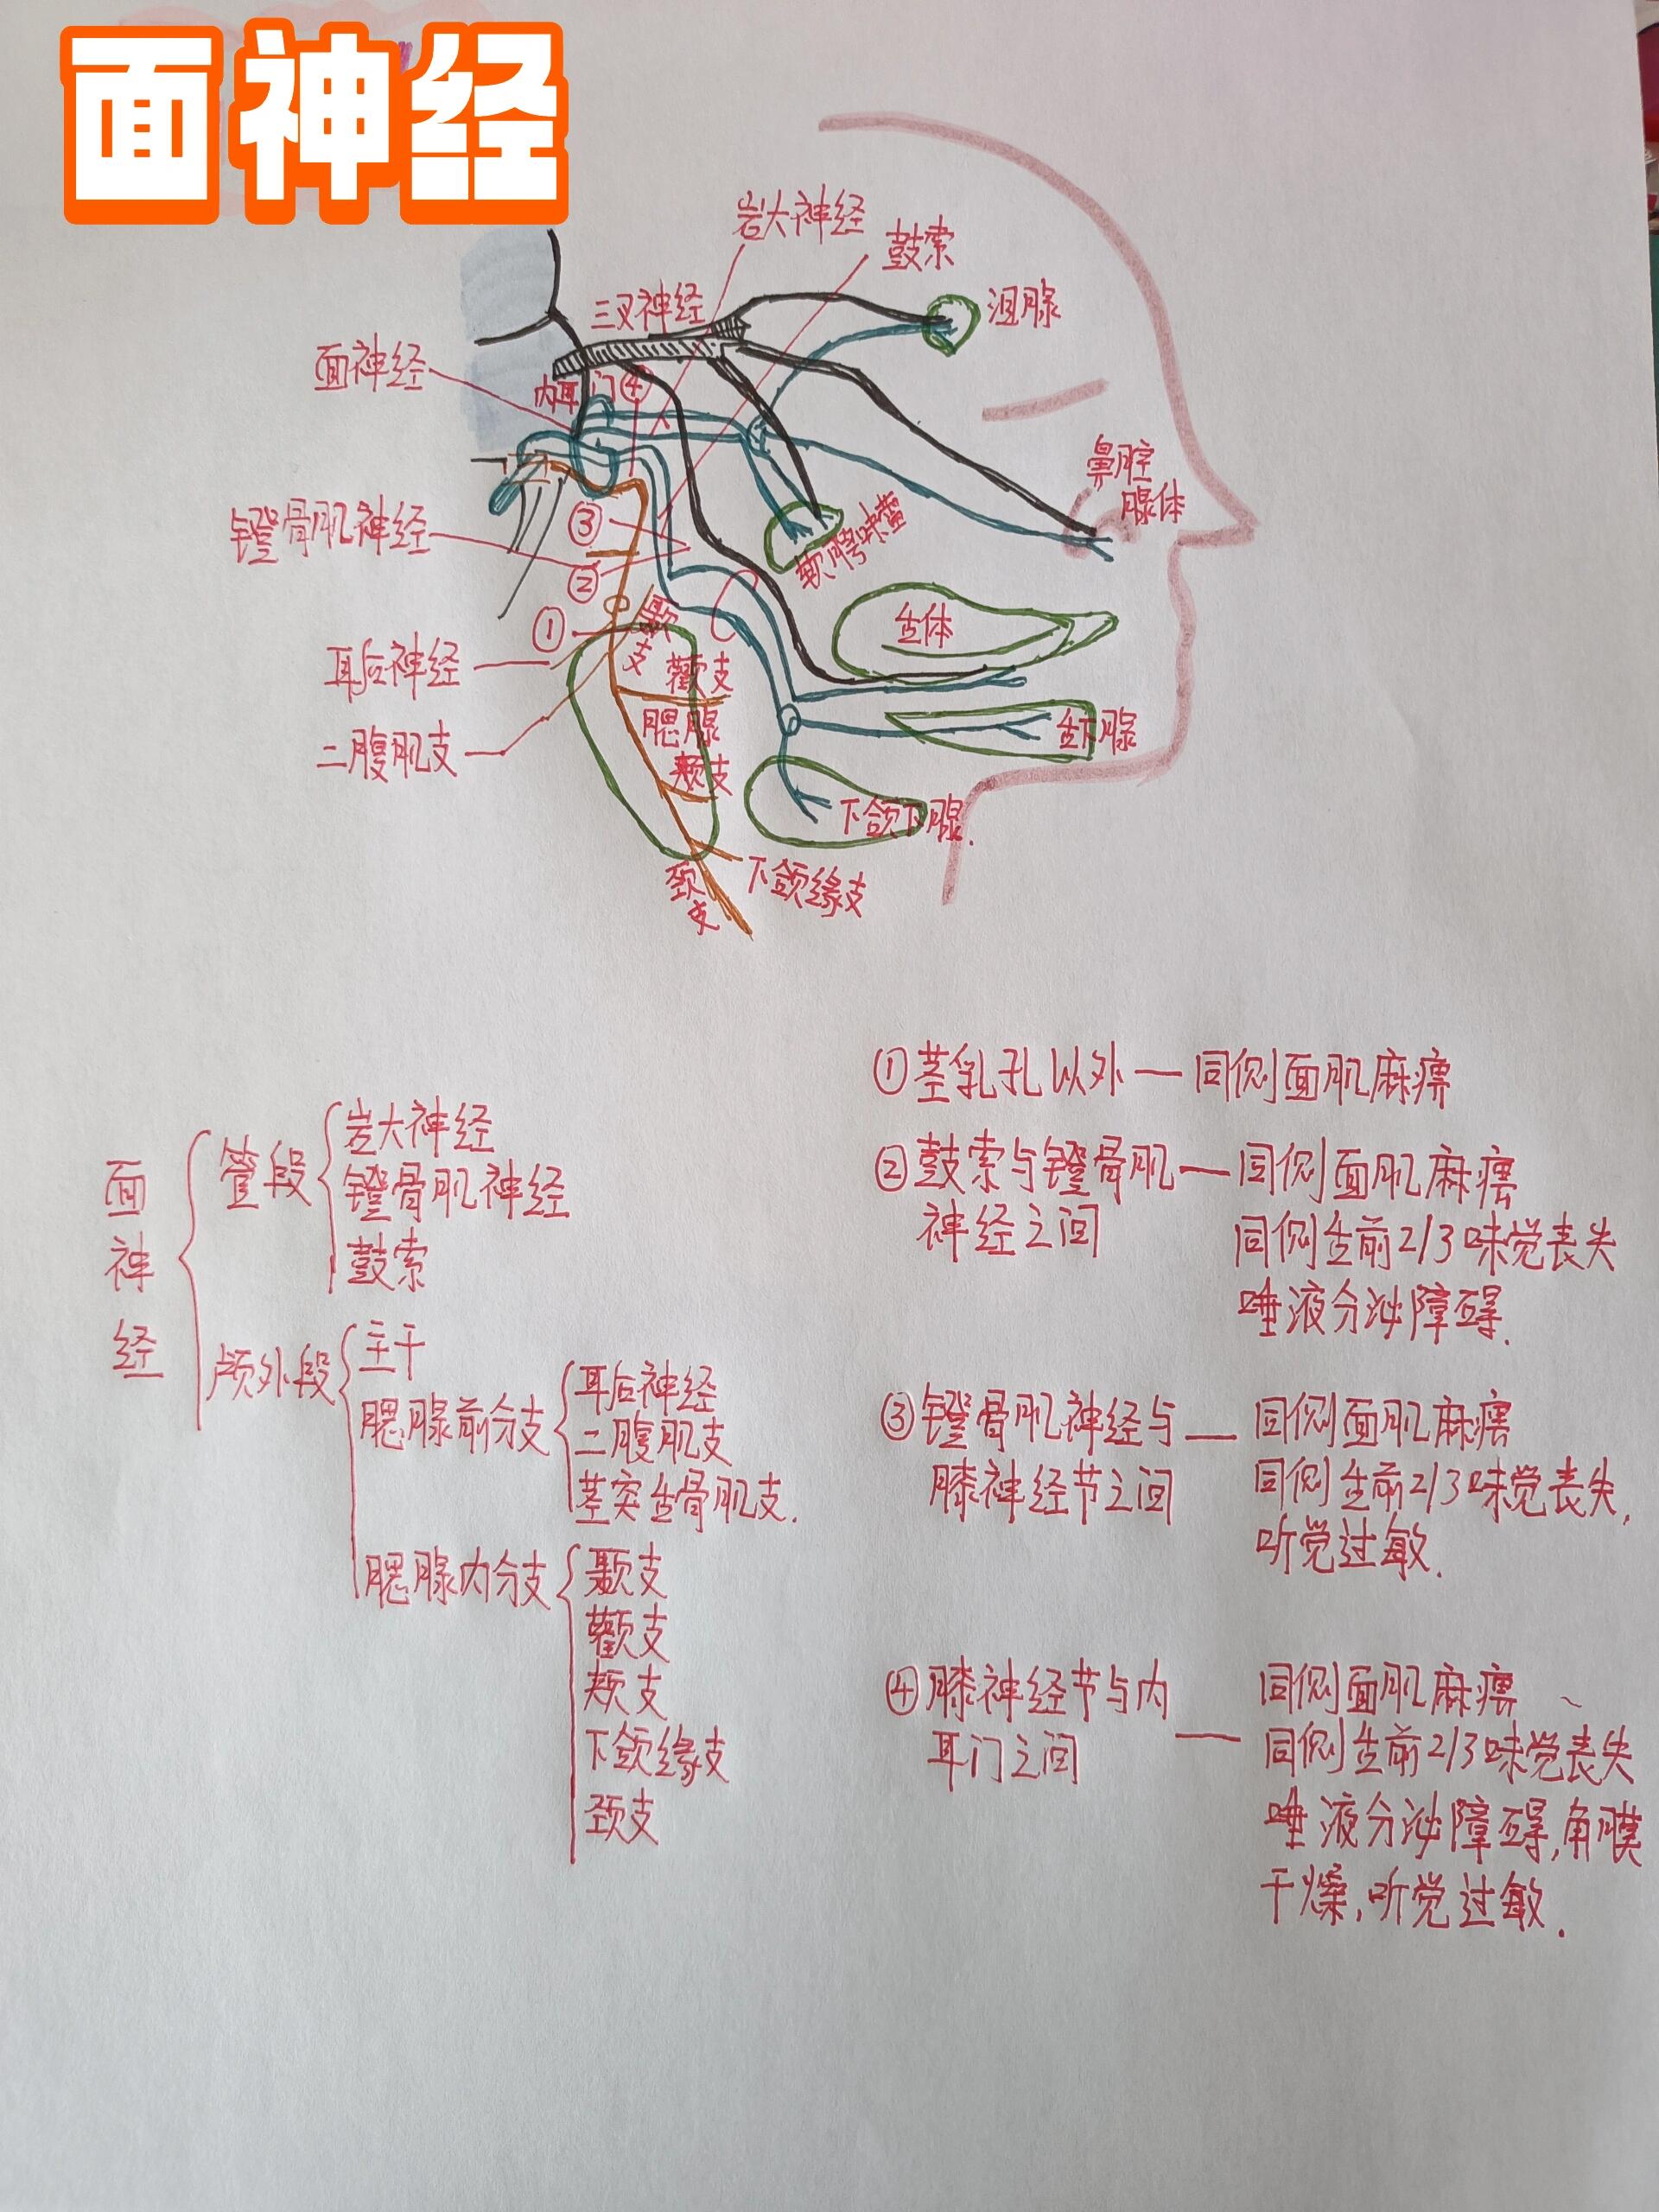 面神经
岩大神经
鼓索
三叉神经
泪腺
面神经
内耳门④
鼻腔
腺体
镫骨肌神经
③
软腭味蕾
②
①
颞支
舌体
耳后神经
颧支
腮腺
舌下腺
二腹肌支
颊支
下颌下腺.
下颌缘支
颈支
面神经
管段
岩大神经
镫骨肌神经
鼓索
颅外段
主干
腮腺前分支
耳后神经
二腹肌支
茎突舌骨肌支.
腮腺内分支
颞支
颧支
颊支
下颌缘支
颈支
①茎乳孔以外—同侧面肌麻痹
②鼓索与镫骨肌—同侧面肌麻痹
神经之间 同侧舌前2/3味觉丧失
唾液分泌障碍.
③镫骨肌神经与—同侧面肌麻痹
膝神经节之间 同侧舌前2/3味觉丧失,
听觉过敏.
④膝神经节与内 同侧面肌麻痹、
耳门之间—同侧舌前2/3味觉丧失
唾液分泌障碍,角膜
干燥,听觉过敏.